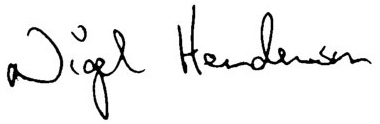 Nigel Henderson